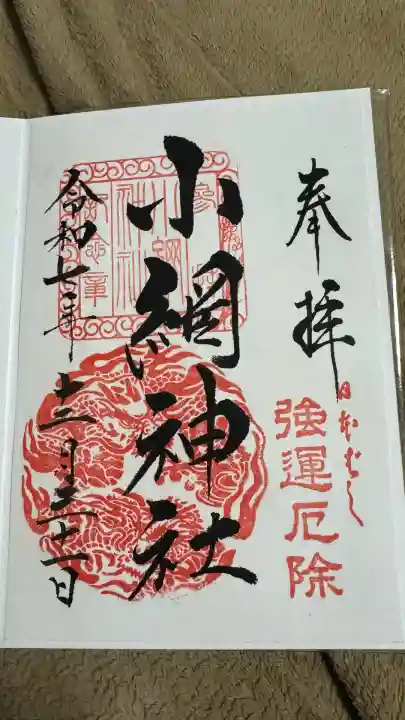 奉拝
日本ばし
強運厄除
小網神社
令和七年十二月三十一日